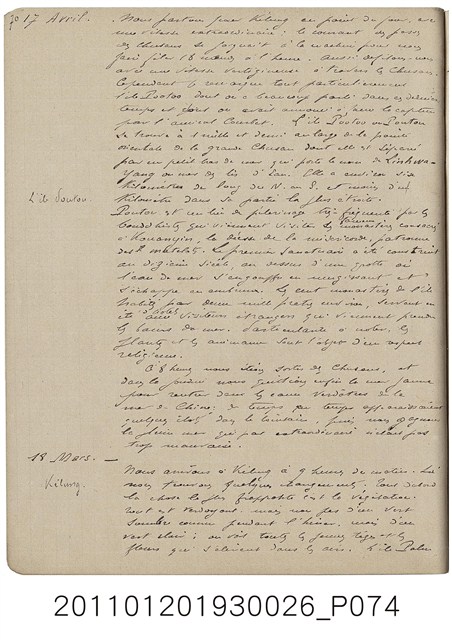 17 Avril.
Nous partons pour Kélung au point du jour, avec
une vitesse extraordinaire; le courant des passes
des Chusan se joignant à la machine pour nous
faire filer 18 nœuds à l'heure. Aussi défilons-nous
avec une vitesse vertigineuse à travers les Chusan.
Cependant je remarque tout particulièrement
l'île Pootoo dont on a beaucoup parlé dans ces derniers
temps et dont on avait annoncé à Paris la capture
par l'amiral Courbet. L'île Pootoo ou Poutou
se trouve à 1 mille et demi au large de la pointe
orientale de la grande Chusan dont elle est séparée
par un petit bras de mer qui porte le nom de
Yang ou mer des lis d'eau. Elle a environ six
L'île Poutou.
kilomètres de long du N. au S. et moins d'un
kilomètre dans sa partie la plus étroite.
Poutou est un lieu de pèlerinage très fréquenté par les
bouddhistes qui viennent visiter les monastères consacrés
à Kouanyin, la déesse de la miséricorde, patronne
des matelots. Le premier sanctuaire a été construit
au dixième siècle au dessus d'une grotte où
l'eau de mer s'engouffre en mugissant et
s'échappe en écume. Les cent monastères de l'île
habités par deux mille prêtres environ, servent en
été d'hôtels aux visiteurs étrangers qui viennent prendre
les bains de mer. Particularité à noter, les
plantes et les animaux sont l'objet d'un respect
religieux.
À 8 heures nous étions sortis des Chusan, et
dans la journée nous quittions enfin la mer jaune
pour rentrer dans les eaux verdâtres de la
mer de Chine; de temps en temps apparaissaient
quelques îlots dans le lointain, puis nous gagnons
la pleine mer qui par extraordinaire n'était pas
trop mauvaise.
18 Mars. —
Kélung.
Nous arrivons à Kélung à 9 heures du matin. Là
nous trouvons quelques changements. Tout d'abord
la chose la plus frappante est la végétation.
Tout est verdoyant, mais non pas d'un vert
sombre comme pendant l'hiver, mais d'un
vert clair; on voit toutes les jeunes tiges et les
fleurs qui s'élèvent dans les airs. L'île Palm
201101201930026_P074